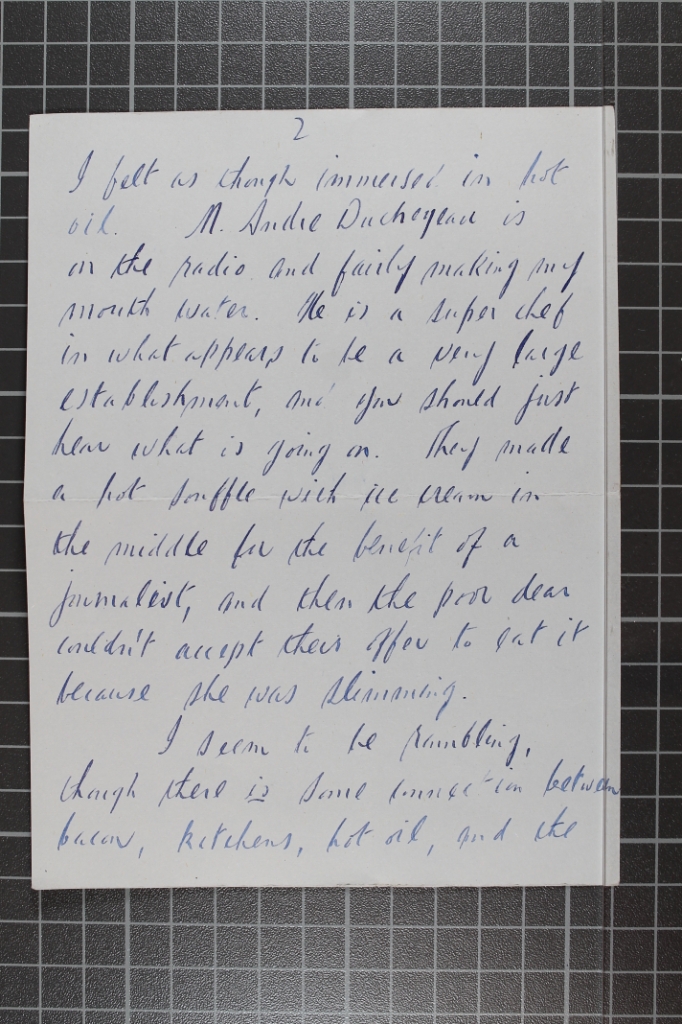 2
I felt as though immersed in hot
oil. M. Andre Duchegeau is
on the radio and fairly making my
mouth water. He is a super chef
in what appears to be a very large
establishment, and you should just
hear what is going on. They made
a hot souffle with ice cream in
the middle for the benefit of a
journalist, and then the poor dear
couldn't accept their offer to eat it
because she was slimming.
I seem to be rambling,
though there is some connection between
bacon, kitchens, hot oil, and the